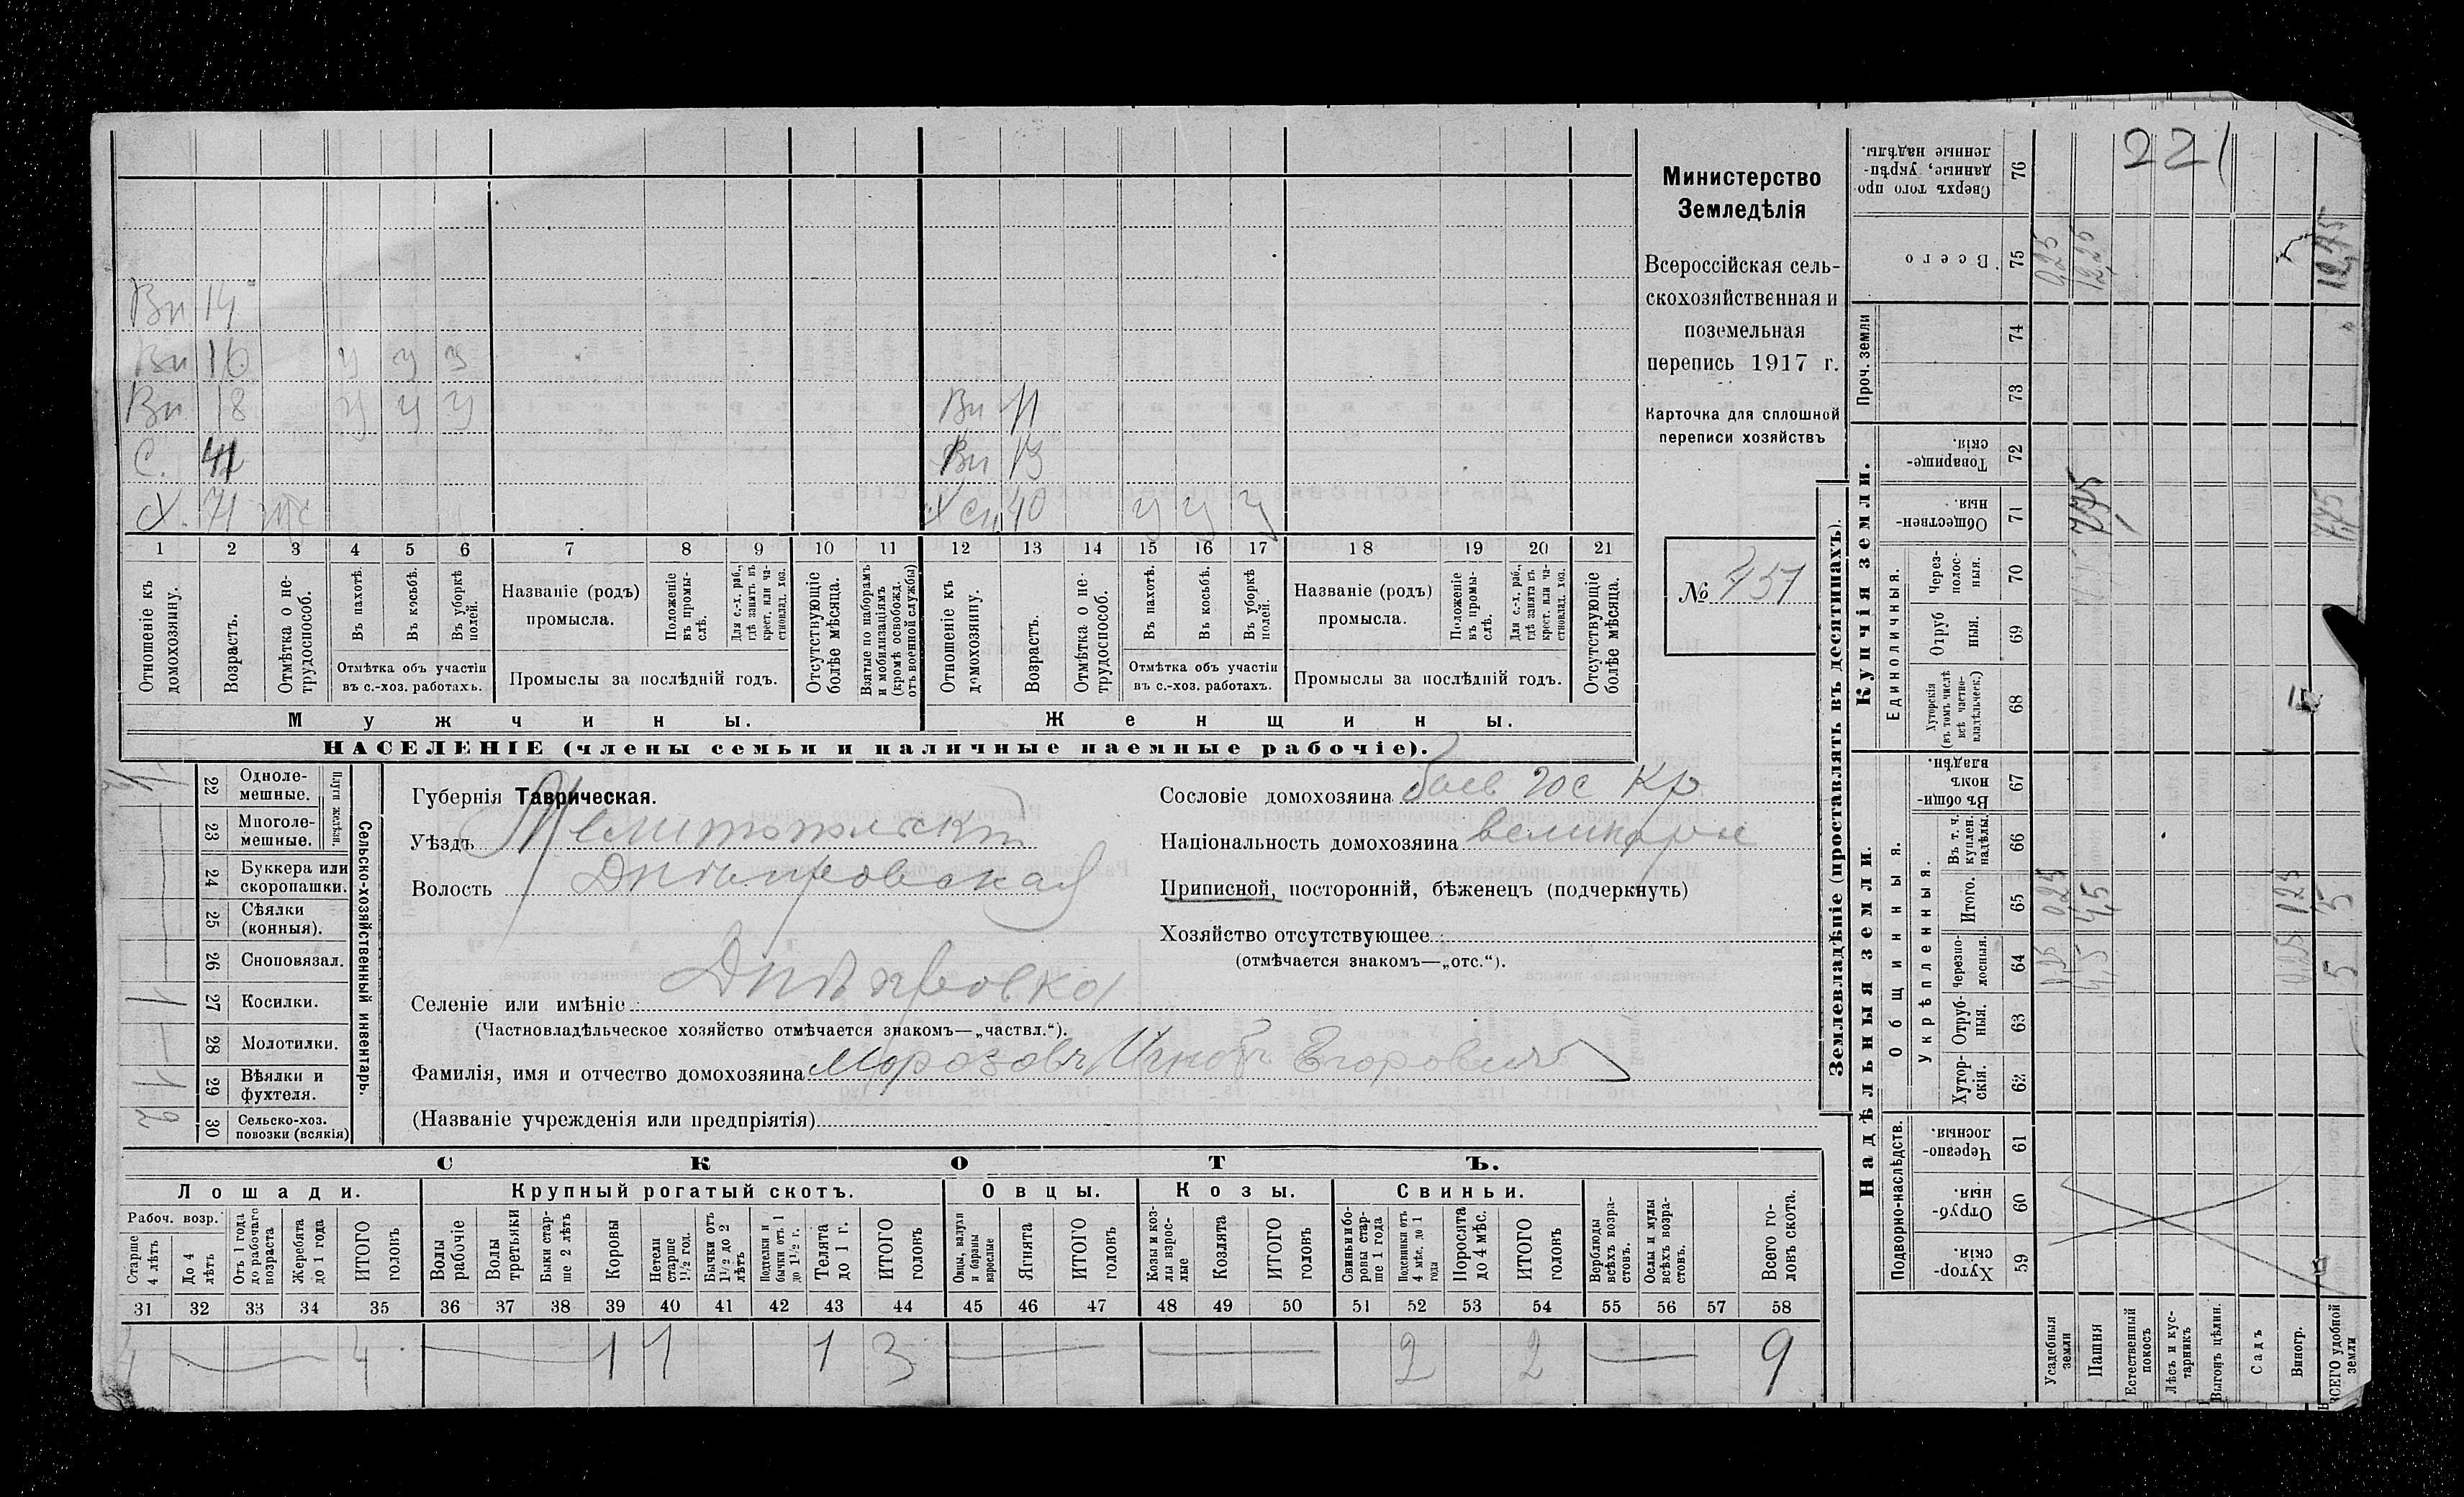 Вн 14
Вн 16 у у у
Вн 18 у у у
Вн 11
С. 41
Вн 13
Х. 71
Х сн 40 у у у
1 2 3 4 5 6 7 8 9 10 11 12 13 14 15 16 17 18 19 20 21
Отношеніе къ домохозяину.
Возрастъ.
Отмѣтка о не-трудоспособ.
Въ пахотѣ.
Въ косьбѣ.
Въ уборкѣ полей.
Отмѣтка объ участіи въ с.-хоз. работахъ.
Названіе (родъ) промысла.
Положеніе въ промы-слѣ.
Для с.-х. раб., гдѣ занятъ въ крест. или ча-стновлад. хоз.
Промыслы за послѣдній годъ.
Отсутствующіе болѣе мѣсяца.
Взятые по наборамъ и мобилизаціямъ (кромѣ освобожд. отъ военной службы)
Отношеніе къ домохозяину.
Возрастъ.
Отмѣтка о не-трудоспособ.
Въ пахотѣ.
Въ косьбѣ.
Въ уборкѣ полей.
Отмѣтка объ участіи въ с.-хоз. работахъ.
Названіе (родъ) промысла.
Положеніе въ промы-слѣ.
Для с.-х. раб., гдѣ занята въ крест. или ча-стновлад. хоз.
Промыслы за послѣдній годъ.
Отсутствующіе болѣе мѣсяца.
Мужчины.
Женщины.
НАСЕЛЕНІЕ (члены семьи и наличные наемные рабочіе).
Министерство
Земледѣлія
Всероссійская сель-
скохозяйственная и
поземельная
перепись 1917 г.
Карточка для сплошной
переписи хозяйствъ
№ 451
Сельско-хозяйственный инвентарь.
Плуги желѣзн.
22 Одноле-мешные. 1
23 Многоле-мешные.
24 Буккера или скоропашки.
25 Сѣялки (конныя).
26 Сноповязал.
27 Косилки. 1
28 Молотилки.
29 Вѣялки и фухтеля. 1
30 Сельско-хоз. повозки (всякія) 2
Губернія Таврическая.
Уѣздъ Мелитопольскій
Волость Днѣпровская
Селеніе или имѣніе Днѣпровка
(Частновладѣльческое хозяйство отмѣчается знакомъ—„частвл.“).
Фамилія, имя и отчество домохозяина Морозовъ Игнатъ Егоровичъ
(Названіе учрежденія или предпріятія)
Сословіе домохозяина быв гос Кр
Національность домохозяина великорос
Приписной, посторонній, бѣженецъ (подчеркнуть)
Хозяйство отсутствующее
(отмѣчается знакомъ—„отс.“).
СКОТЪ.
Лошади.
Крупный рогатый скотъ.
Овцы.
Козы.
Свиньи.
Рабоч. возр.
Старше 4 лѣтъ
До 4 лѣтъ
Отъ 1 года до рабочаго возраста
Жеребята до 1 года
ИТОГО головъ
Волы рабочіе
Волы третьяки
Быки стар-ше 2 лѣтъ
Коровы
Нетели старше 1½ год.
Бычки отъ 1½ до 2 лѣтъ
Подтелки и бычки отъ 1 до 1½ г.
Телята до 1 г.
ИТОГО головъ
Овцы, валухи и бараны взрослые
Ягнята
ИТОГО головъ
Козы и коз-лы взрос-лые
Козлята
ИТОГО головъ
Свиньи и бо-ровы стар-ше 1 года
Подсвинки отъ 4 мѣс. до 1 года
Поросята до 4 мѣс.
ИТОГО головъ
Верблюды всѣхъ возра-стовъ.
Ослы и мулы всѣхъ возра-стовъ.
Всего го-ловъ скота.
31 32 33 34 35 36 37 38 39 40 41 42 43 44 45 46 47 48 49 50 51 52 53 54 55 56 57 58
4 4 1 1 1 3 2 2 9
221
Землевладѣніе (проставлять въ десятинахъ).
Надѣльныя земли.
Купчія земли.
Проч. земли
Подворно-наслѣдств.
Общинныя.
Укрѣпленныя.
Единоличныя.
Сверхъ того про-данные, укрѣп-ленные надѣлы. 76
Всего 75 0,25 12,25
74
73
Товарище-скія. 72
Обществен-ныя. 71 7,75 7,75
Через-полос-ныя. 70
Отруб-ныя. 69
Хуторскія (въ томъ числѣ всѣ частно-владѣльческ.) 68
Въ общи-номъ владѣн. 67
Въ т. ч. куплен. надѣлы. 66
Итого. 65 0,25 4,5 0,25 5
Черезпо-лосныя. 64 0,25 4,5 0,25 5
Отруб-ныя. 63
Хутор-скія. 62
Черезпо-лосныя. 61
Отруб-ныя. 60
Хутор-скія. 59
Усадебныя земли
Пашня
Естественный покосъ
Лѣсъ и кус-тарникъ
Выгонъ цѣлин.
Садъ
Виногр.
ВСЕГО удобной земли